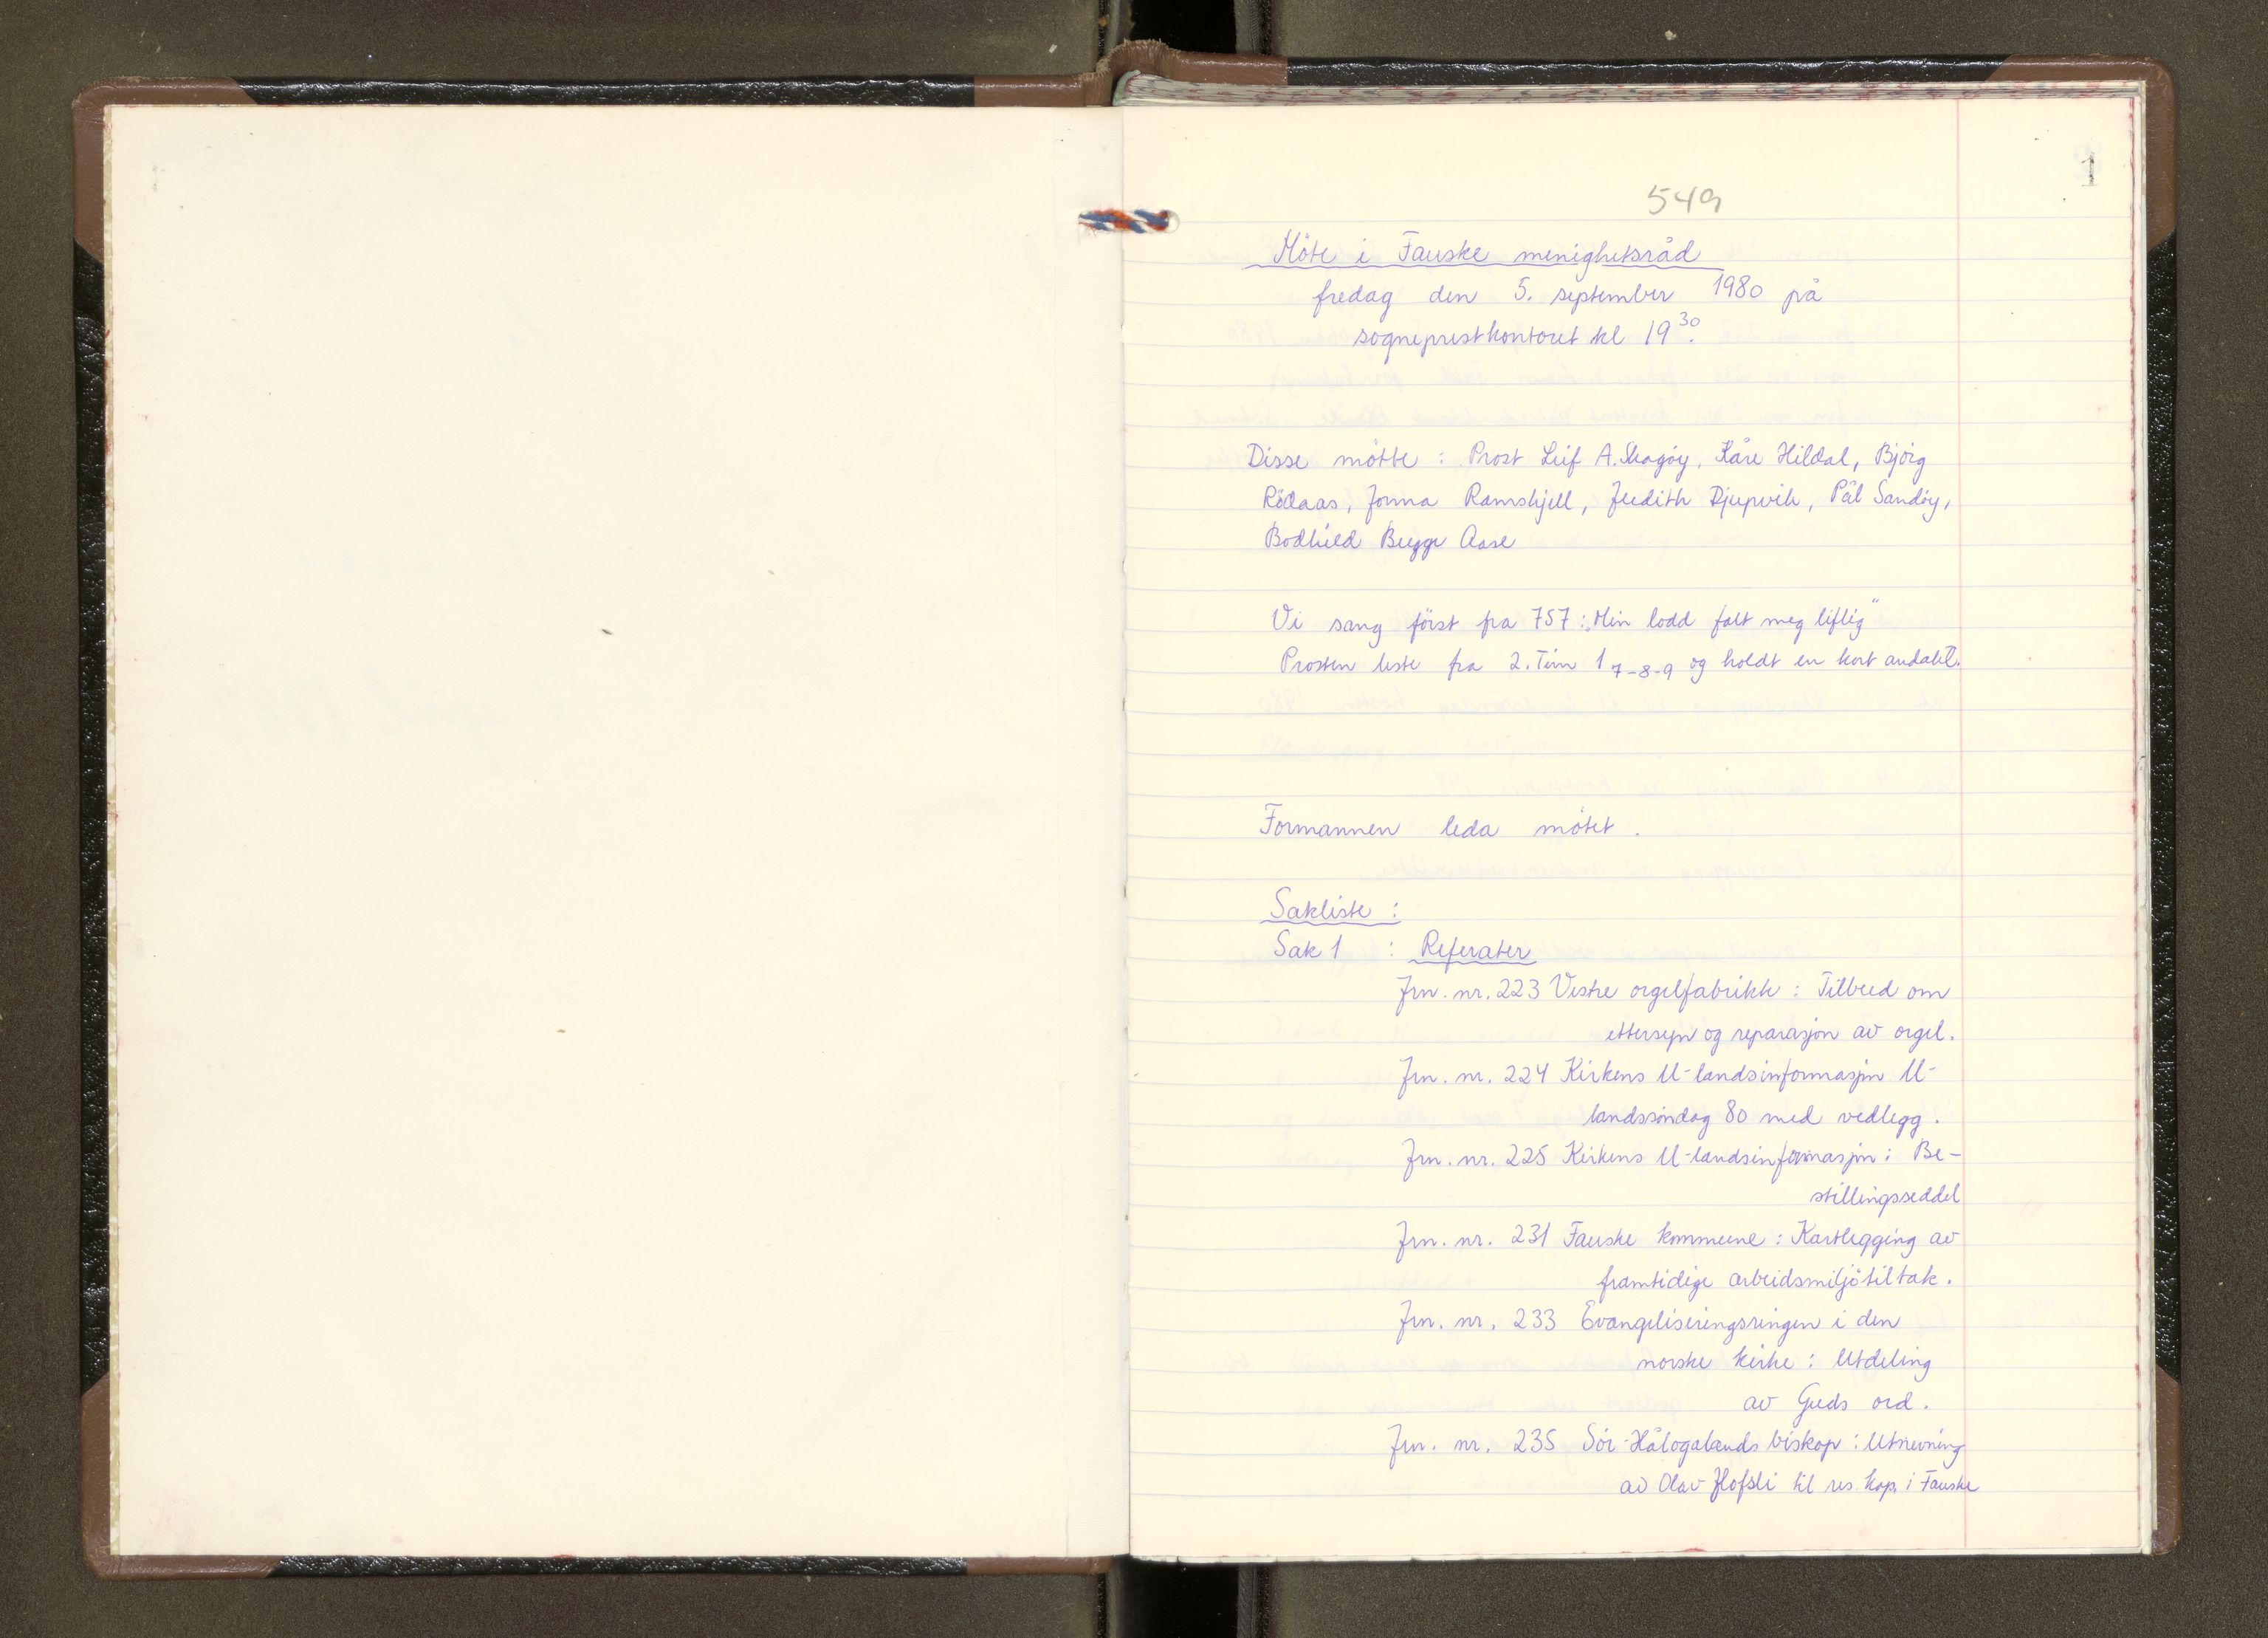 1
549
Möte i Fauske menighetsråd
fredag den 5. september 1980 på
sogneprestkontoret kl 19³⁰.
Disse møtte : Prost Leif A. Skagöy, Kåre Hildal, Bjørg
Rödaas, Jonna Ramskjell, Judith Djupvik, Pål Sandöy,
Bodhild Bugge Aase
Vi sang först fra 757: "Min lodd falt meg liflig"
Prosten leste fra 2. Tim 1 7-8-9 og holdt en kort andakt.
Formannen leda mötet.
Sakliste :
Sak 1 : Referater
Jrn. nr. 223 Vestre orgelfabrikk : Tilbud om
ettersyn og reparasjon av orgel.
Jrn. nr. 224 Kirkens U-landsinformasjon U-
landssöndag 80 med vedlegg.
Jrn. nr. 225 Kirkens U-landsinformasjon : Be-
stillingsseddel
Jrn. nr. 231 Fauske kommune : Kartlegging av
framtidige arbeidsmiljötiltak.
Jrn. nr. 233 Evangeliseringsringen i den
norske kirke : Utdeling
av Guds ord.
Jrn. nr. 235 Sör-Hålogalands biskop : Utnevning
av Olav Hofsli til res. kap. i Fauske